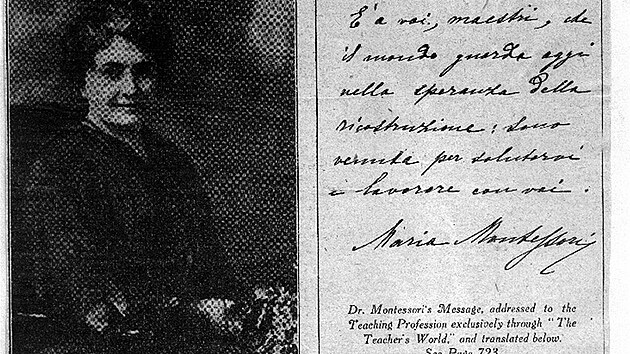 È a voi, maestri, che
il mondo guarda oggi
nella speranza della
ricostruzione; sono
venuta per salutarvi
e lavorare con voi.
Maria Montessori
Dr. Montessori's Message, addressed to the
Teaching Profession exclusively through "The
Teacher's World," and translated below.
See Page 723